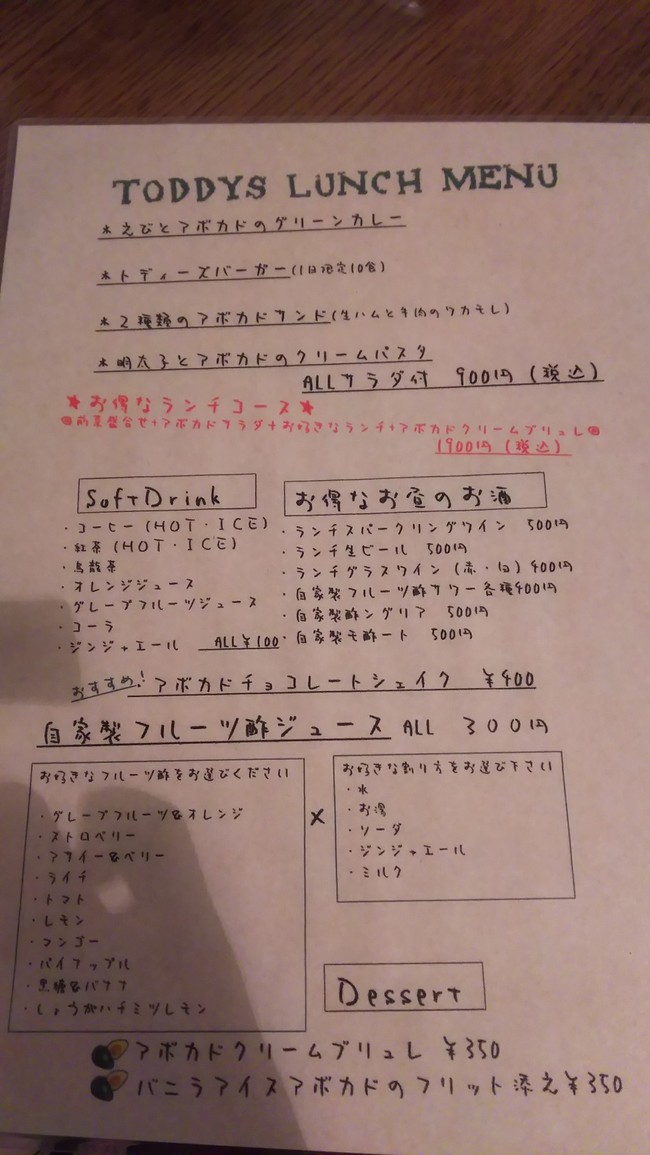 TODDYS LUNCH MENU
*えびとアボカドのグリーンカレー
*トディーズバーガー(1日限定10食)
*2種類のアボカドサンド(生ハムと牛肉のワカモレ)
*明太子とアボカドのクリームパスタ
ALLサラダ付 900円(税込)
★お得なランチコース★
◎前菜盛合せ+アボカドサラダ+お好きなランチ+アボカドクリームブリュレ◎
1900円(税込)
Soft Drink
・コーヒー(HOT・ICE)
・紅茶(HOT・ICE)
・烏龍茶
・オレンジジュース
・グレープフルーツジュース
・コーラ
・ジンジャエール ALL¥100
お得なお昼のお酒
・ランチスパークリングワイン 500円
・ランチ生ビール 500円
・ランチグラスワイン(赤・白)400円
・自家製フルーツ酢サワー各種400円
・自家製酢ングリア 500円
・自家製モ酢ート 500円
おすすめ!アボカドチョコレートシェイク ¥400
自家製フルーツ酢ジュース ALL 300円
お好きなフルーツ酢をお選びください
・グレープフルーツ&オレンジ
・ストロベリー
・アサイー&ベリー
・ライチ
・トマト
・レモン
・マンゴー
・パイナップル
・黒糖&バナナ
・しょうがハチミツレモン
×
お好きな割り方をお選び下さい
・水
・お湯
・ソーダ
・ジンジャエール
・ミルク
Dessert
アボカドクリームブリュレ ¥350
バニラアイスアボカドのフリット添え¥350